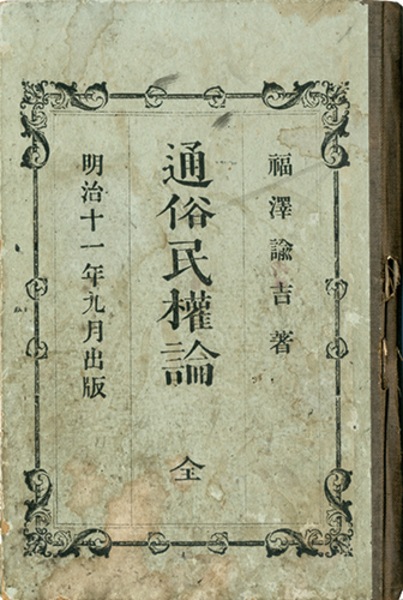 福澤諭吉著
通俗民權論
全
明治十一年九月出版